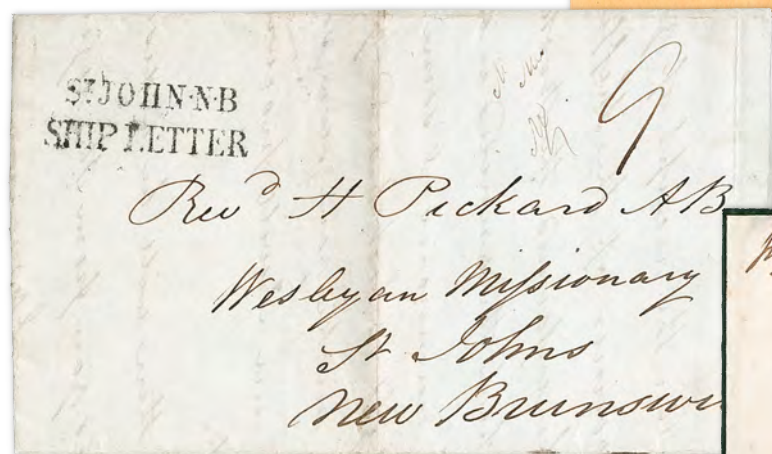 ST JOHN·N·B
SHIP LETTER
9
Revd H Pickard AB
Wesleyan Missionary
St Johns
New Brunswi